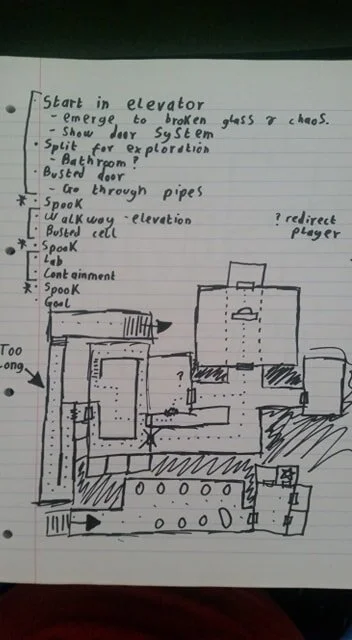 Start in elevator
- emerge to broken glass & chaos.
- Show door system
Split for exploration
- Bathroom?
Busted door
- Go through pipes
* Spook
Walkway - elevation
Busted cell
? redirect player
* Spook
Lab
Containment
* Spook
Goal
Too long
?